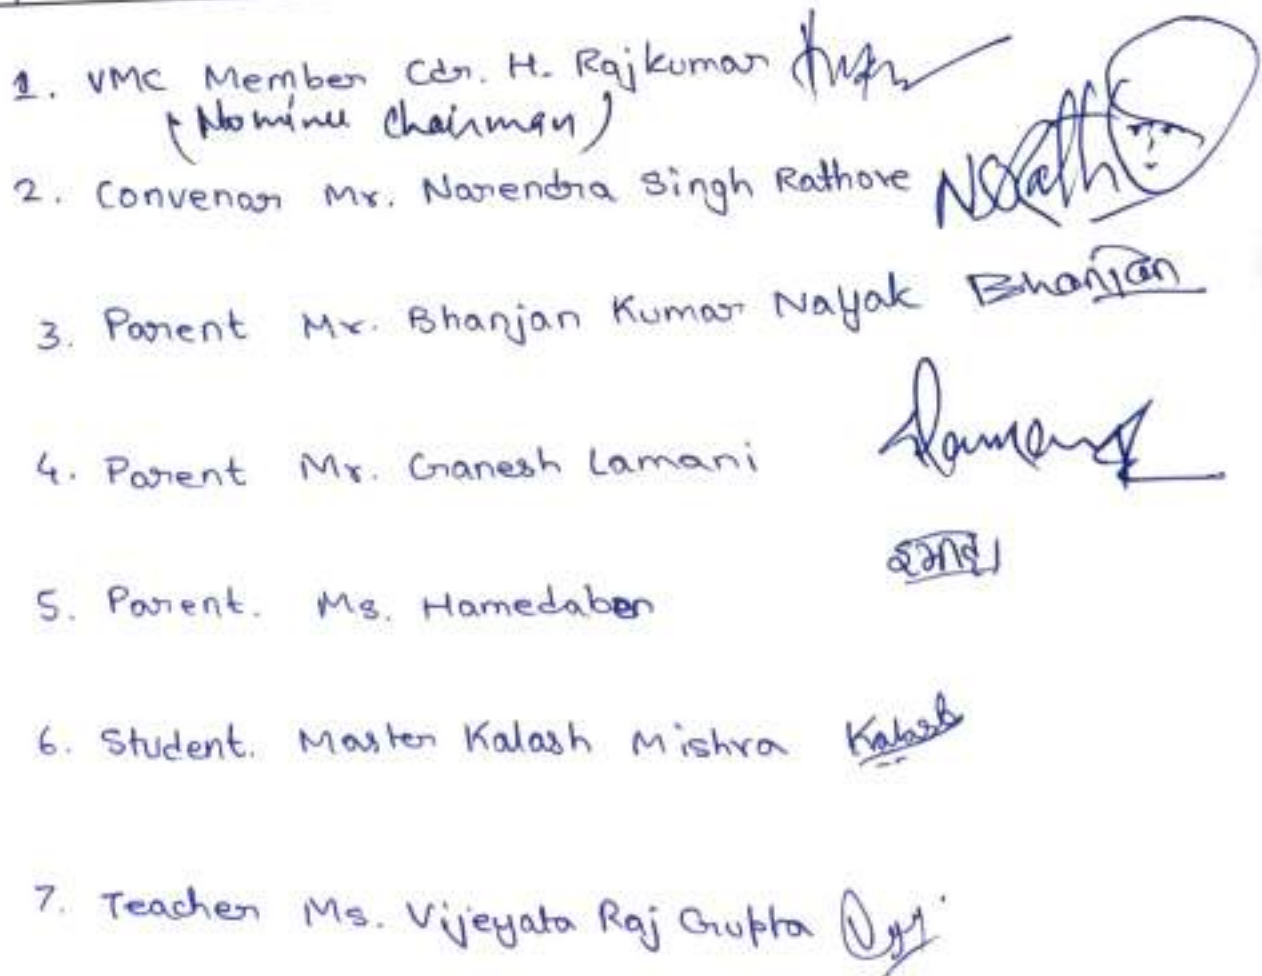 1. VMC Member Cdr. H. Rajkumar
(Nominee Chairman)
2. Convenor Mr. Narendra Singh Rathore NSRath
3. Parent Mr. Bhanjan Kumar Nayak Bhanjan
4. Parent Mr. Ganesh Lamani
5. Parent. Ms. Hamedaben
6. Student. Master Kalash Mishra Kalash
7. Teacher Ms. Vijeyata Raj Gupta